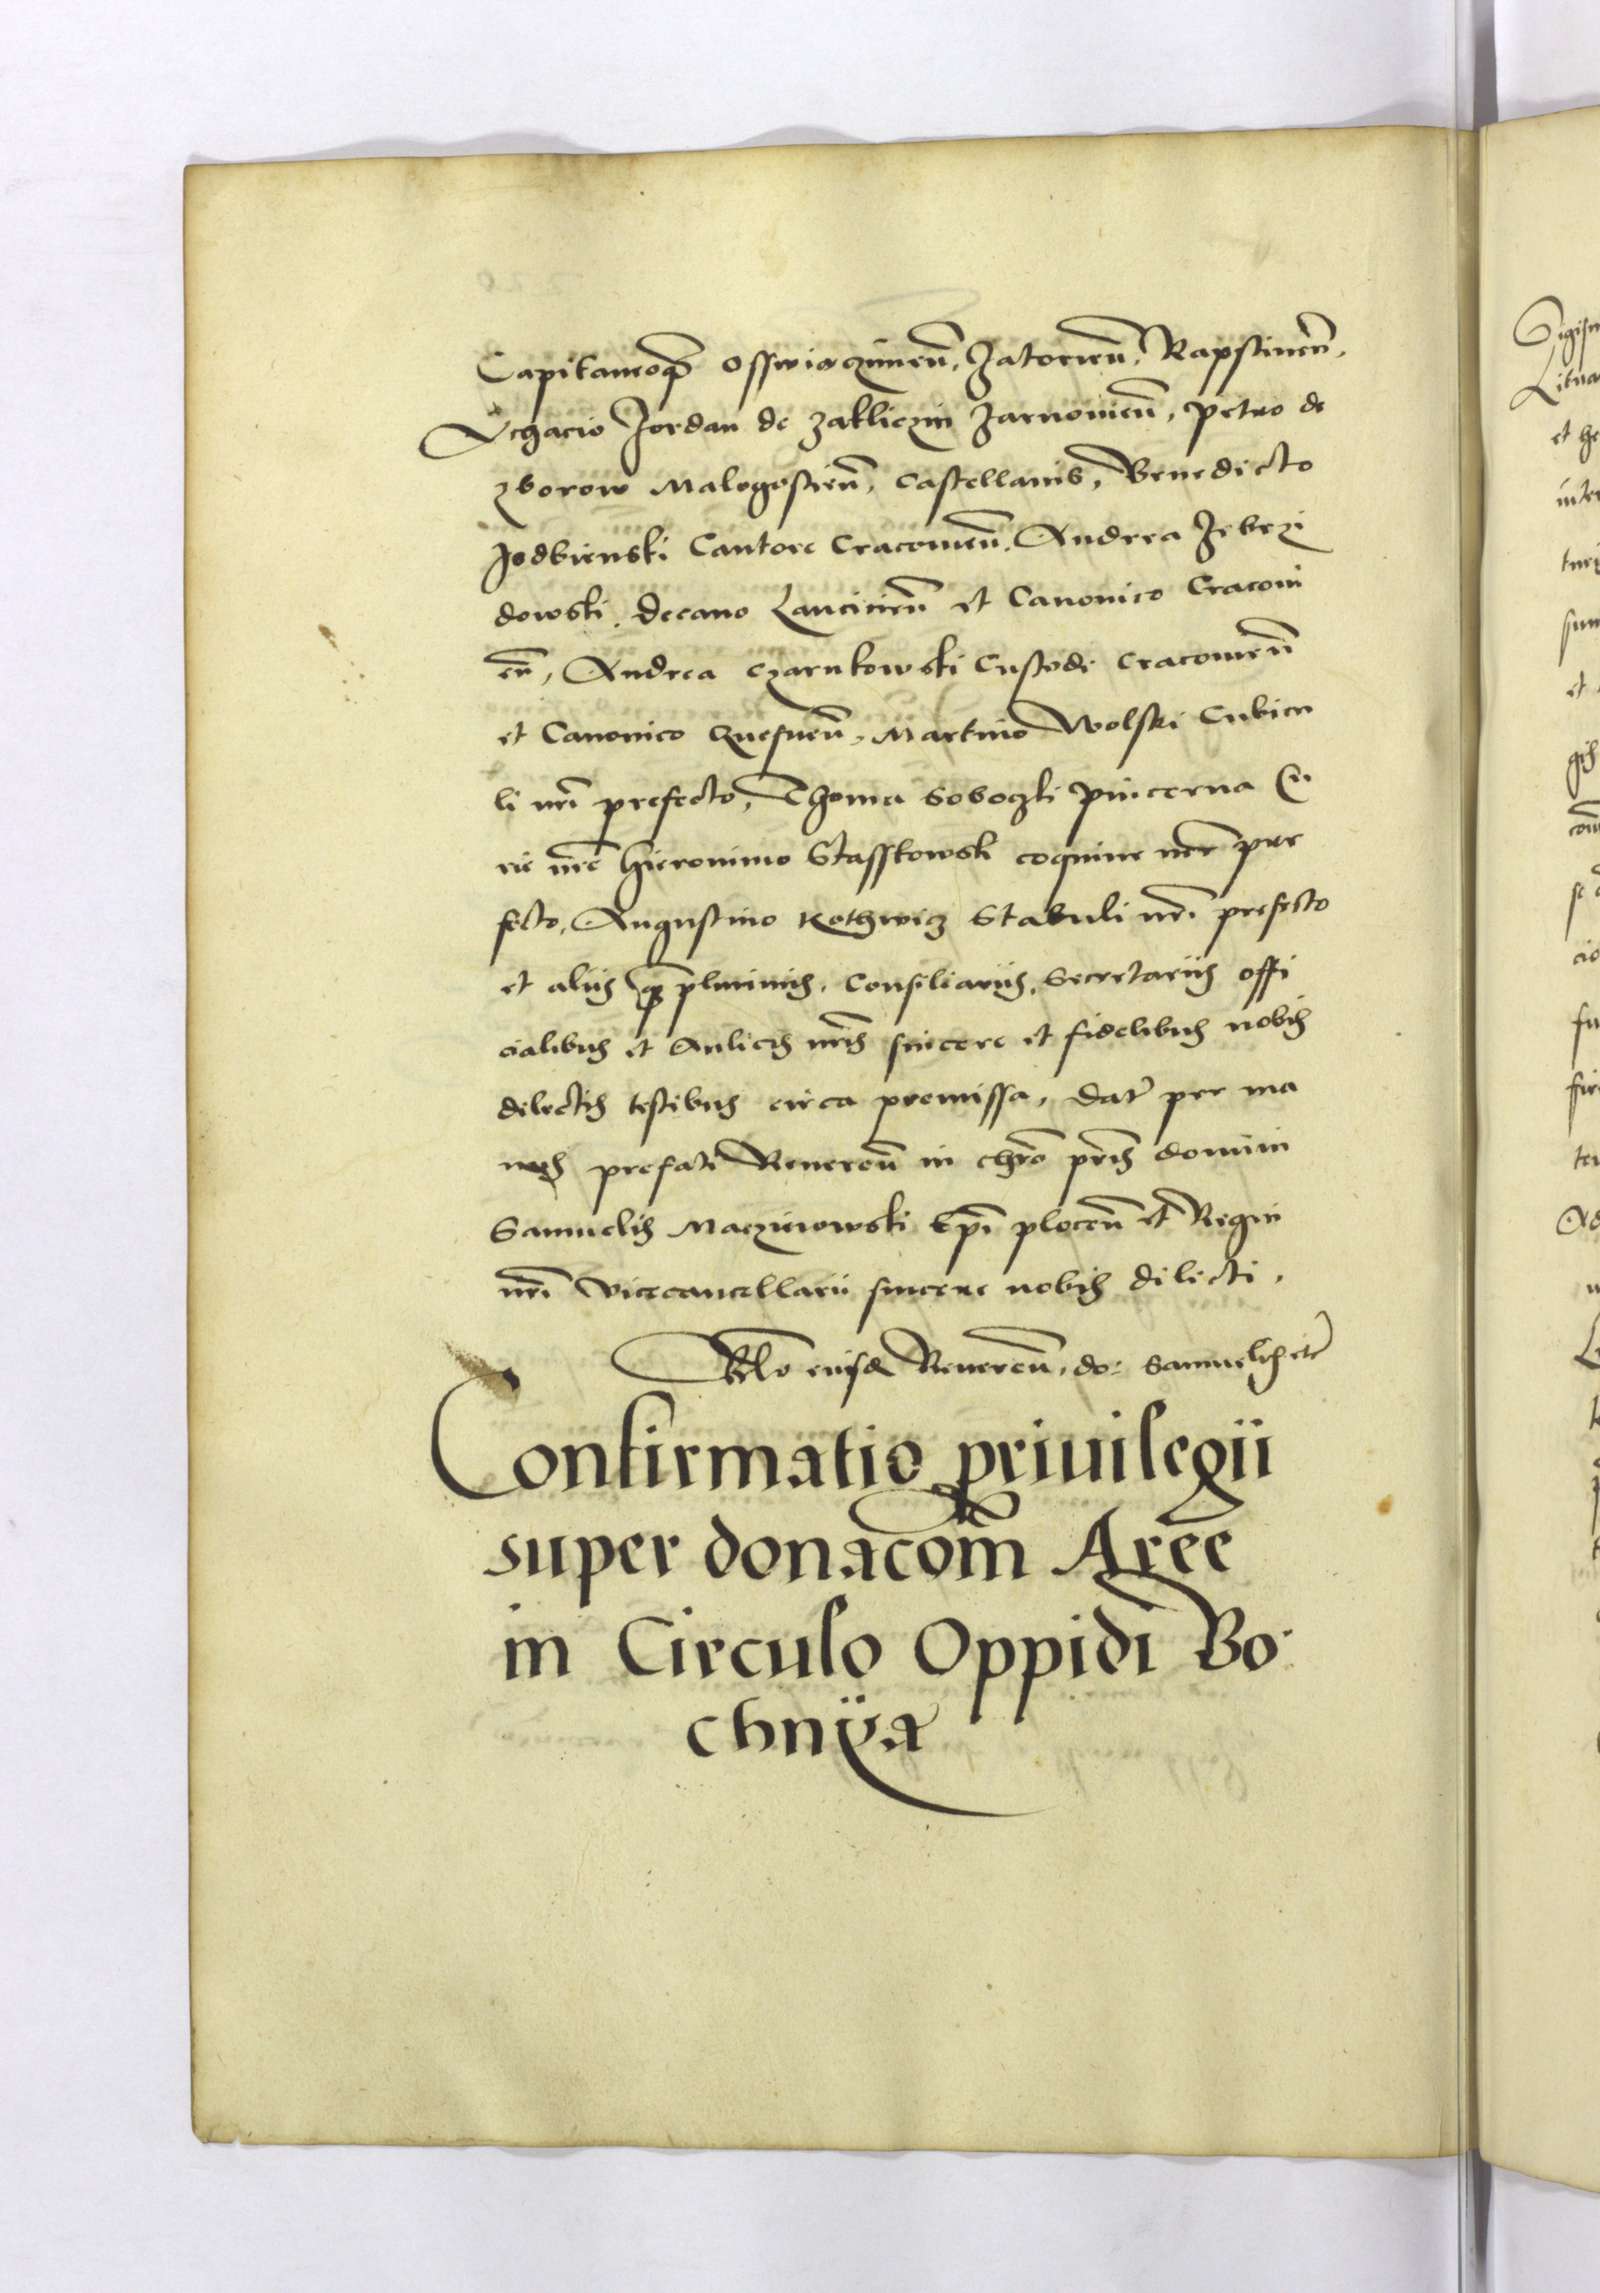 Capitaneoq́ Osswiaczimeñ, Zatorieñ, Rapstineñ,
Achacio Jordan de Zakliczin Zarnovieñ, Petro de
Zborow Malogostieñ, Castellanis, Benedicto
Isdbienski Cantore Cracovieñ, Andrea Zebrzi
dowski, Decano Lancicieñ et Canonico Cracovi
eñ, Andrea Czarnkowski Custode Cracovieñ
et Canonico Gnesneñ, Martino Wolski Cubicu
li nrĩ prefecto, Thoma Soboczki Pincerna Cu
rie nrẽ Hieronimo Stasskowski coquine nrẽ pre
fecto, Augustino Kothwicz Stabuli nrĩ prefecto
et aliis q̃ plurimis, Consiliariis, Secretariis offi
cialibus et Aulicis nrĩs sincere et fidelibus nobis
dilectis testibus circa premissa, Dat̃ per ma
nus prefati Revereñ in chrõ prĩs domini
Samuelis Macziewski Epĩ plocen̄ et Regni
nrĩ Vicecancellarii sincere nobis dilecti.
Rel̃o eiusd Revereñ, do: Samuelis etc̃
Confirmatio privilegii
super donacõm Aree
in Circulo Oppidi Bo
chnÿa
Sigism
Litua
et he
inter